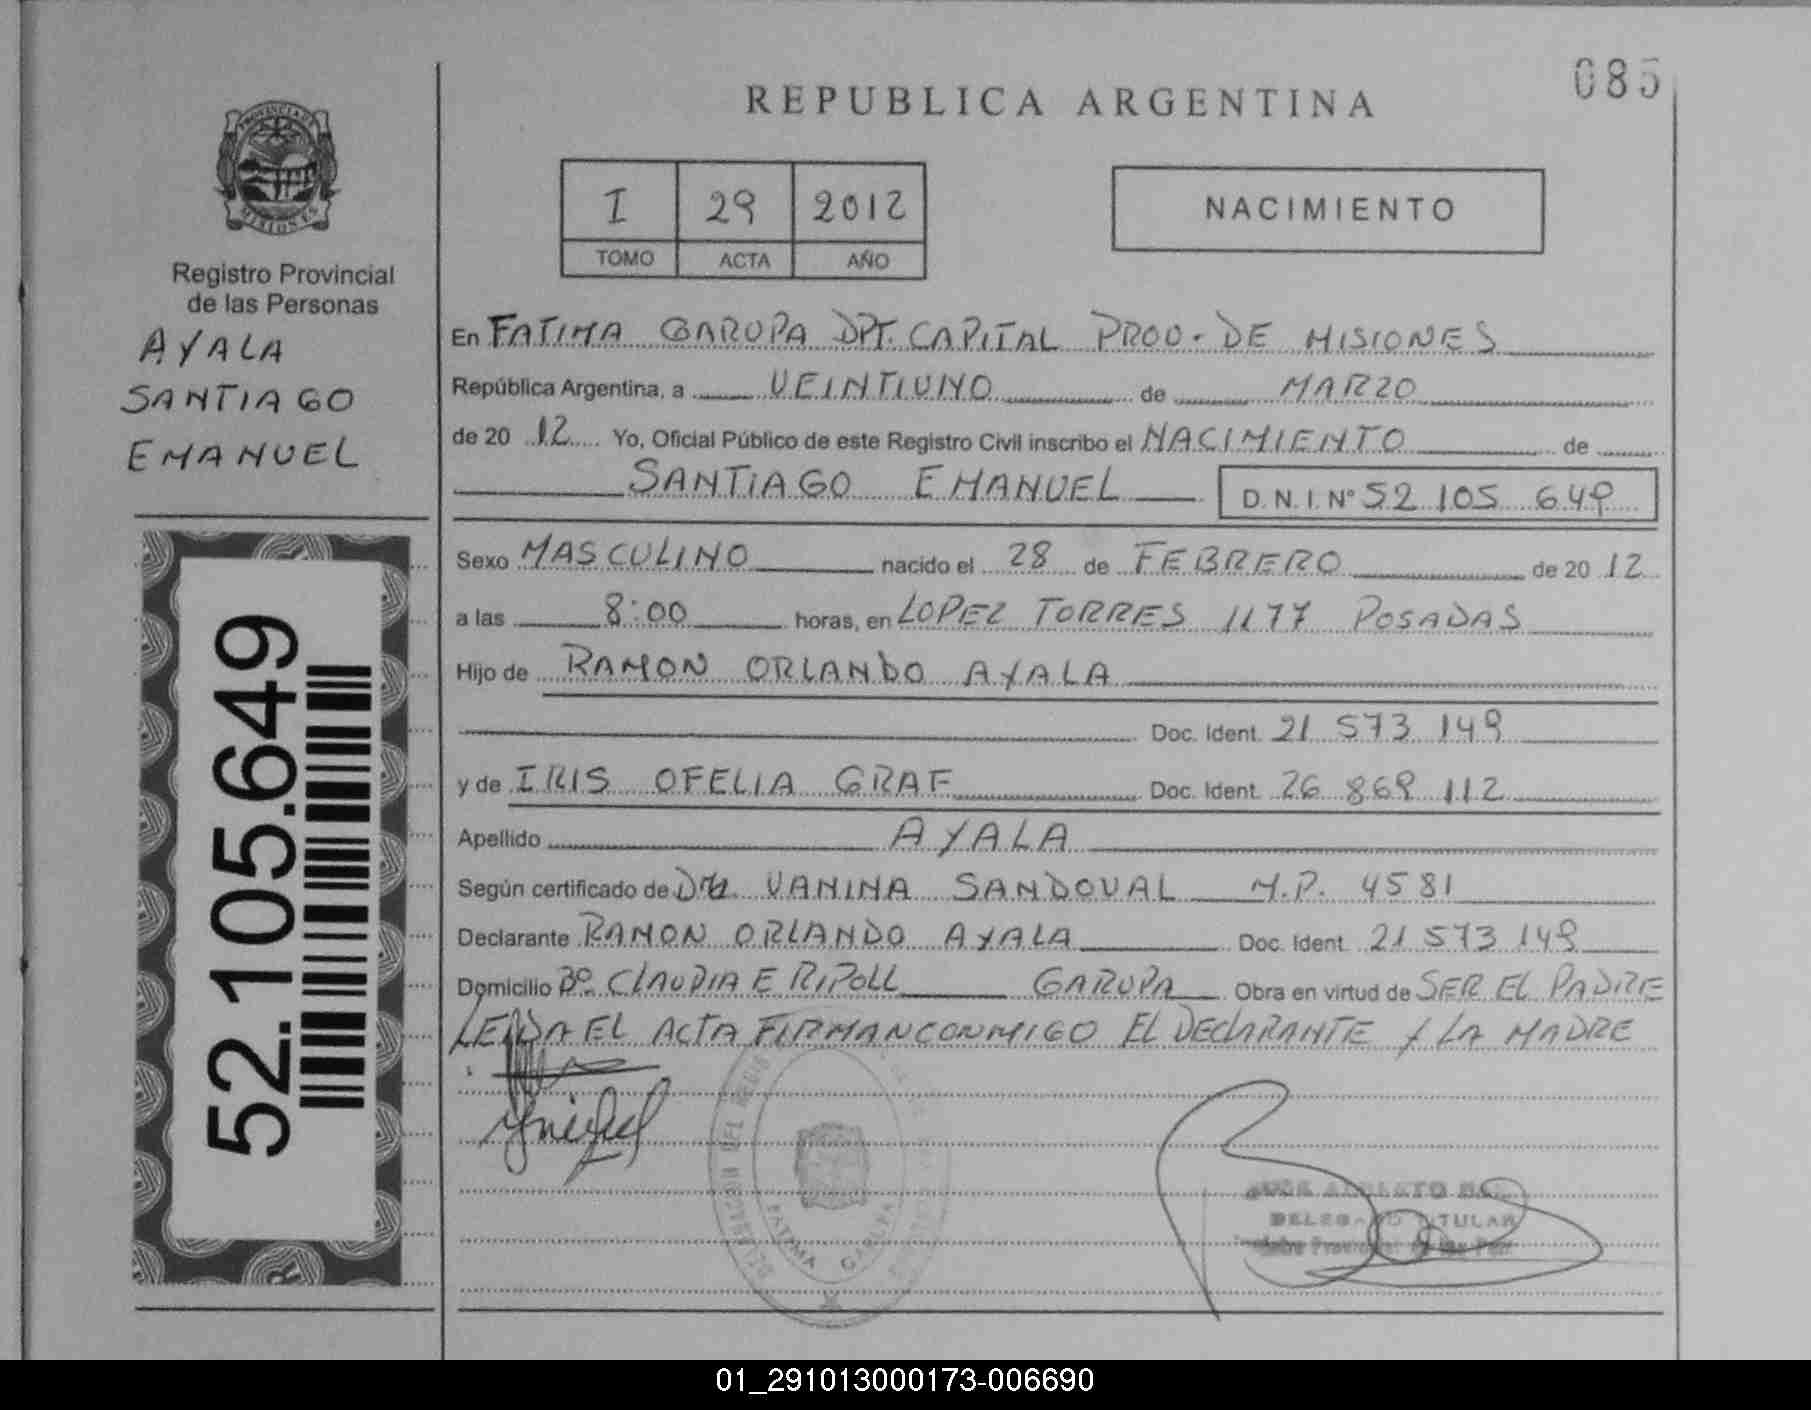 085
REPUBLICA ARGENTINA
PROVINCIA DE
MISIONES
Registro Provincial
de las Personas
AYALA
SANTIAGO
EMANUEL
52.105.649
I 29 2012
TOMO ACTA AÑO
NACIMIENTO
En FATIMA GARUPA DPT. CAPITAL PROV. DE MISIONES
República Argentina, a VEINTIUNO de MARZO
de 20 12 Yo, Oficial Público de este Registro Civil inscribo el NACIMIENTO de
SANTIAGO EMANUEL D. N. I. Nº 52 105 649
Sexo MASCULINO nacido el 28 de FEBRERO de 20 12
a las 8:00 horas, en LOPEZ TORRES 1177 POSADAS
Hijo de RAMON ORLANDO AYALA
Doc. Ident. 21 573 149
y de IRIS OFELIA GRAF Doc. Ident. 26 869 112
Apellido AYALA
Según certificado de DRA. VANINA SANDOVAL M.P. 4581
Declarante RAMON ORLANDO AYALA Doc. Ident. 21 573 149
Domicilio Bº CLAUDIA E RIPOLL GARUPA Obra en virtud de SER EL PADRE
LEIDA EL ACTA FIRMAN CONMIGO EL DECLARANTE Y LA MADRE
FATIMA GARUPA
DELEGADO TITULAR
01_291013000173-006690